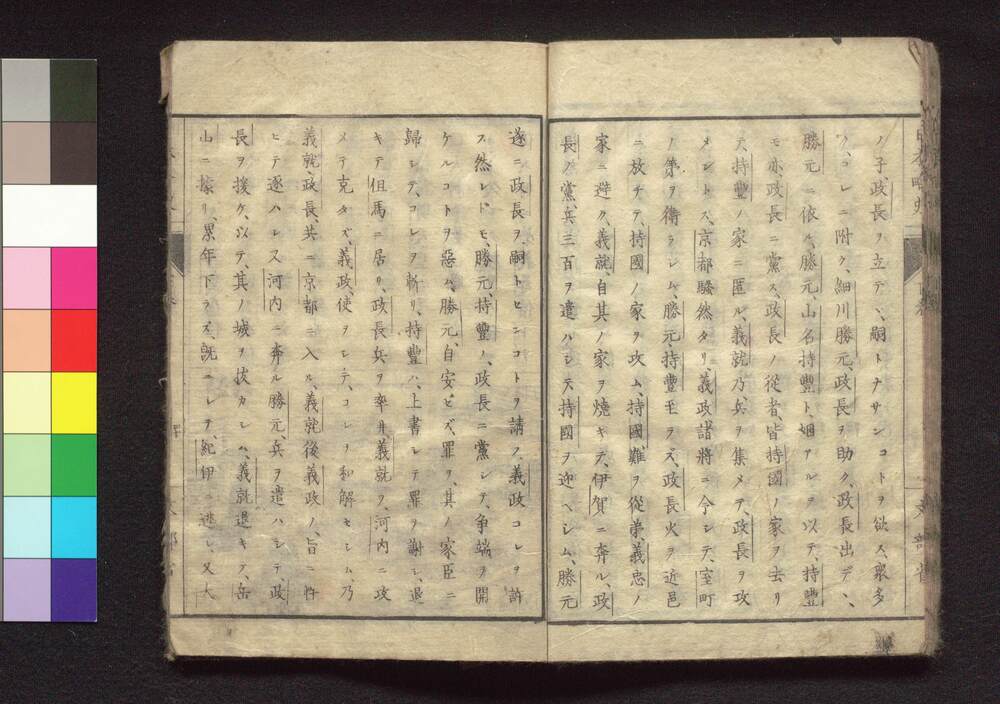 ノ子、政長ヲ立テヽ、嗣トナサンコトヲ欲ス、衆多
ク、コレニ附ク、細川勝元、政長ヲ助ク、政長出デヽ、
勝元ニ依ル、勝元、山名持豐ト、姻アルヲ以テ、持豐
モ亦、政長ニ黨ス、政長ノ從者、皆持國ノ家ヲ去リ
テ、持豐ノ家ニ匿ル、義就乃、兵ヲ集メテ、政長ヲ攻
メントス、京都騷然タリ、義政諸將ニ令シテ、室町
ノ第ヲ衞ラシム、勝元、持豐至ラズ、政長火ヲ近邑
ニ放チテ、持國ノ家ヲ攻ム、持國、難ヲ從弟、義忠ノ
家ニ避ク、義就、自其ノ家ヲ燒キテ、伊賀ニ奔ル、政
長ノ黨、兵三百ヲ遣ハシテ、持國ヲ迎ヘシム、勝元
遂ニ政長ヲ、嗣トセンコトヲ請フ、義政コレヲ許
ス、然レドモ、勝元、持豐ノ、政長ニ黨シテ、爭端ヲ開
ケルコトヲ惡ム、勝元、自安ゼズ、罪ヲ、其ノ家臣ニ
歸シテ、コレヲ斬リ、持豐ハ、上書シテ罪ヲ謝シ、退
キテ但馬ニ居リ、政長兵ヲ率井、義就ヲ、河内ニ攻
メテ克タズ、義政、使ヲシテ、コレヲ和解セシム、乃
義就、政長、共ニ京都ニ入ル、義就後義政ノ、旨ニ忤
ヒテ逐ハレ、又河内ニ奔ル、勝元、兵ヲ遣ハシテ、政
長ヲ援ケ、以テ、其ノ城ヲ拔カシム、義就退キテ、岳
山ニ據リ、累年下ラズ、既ニシテ、紀伊ニ逃レ、又大